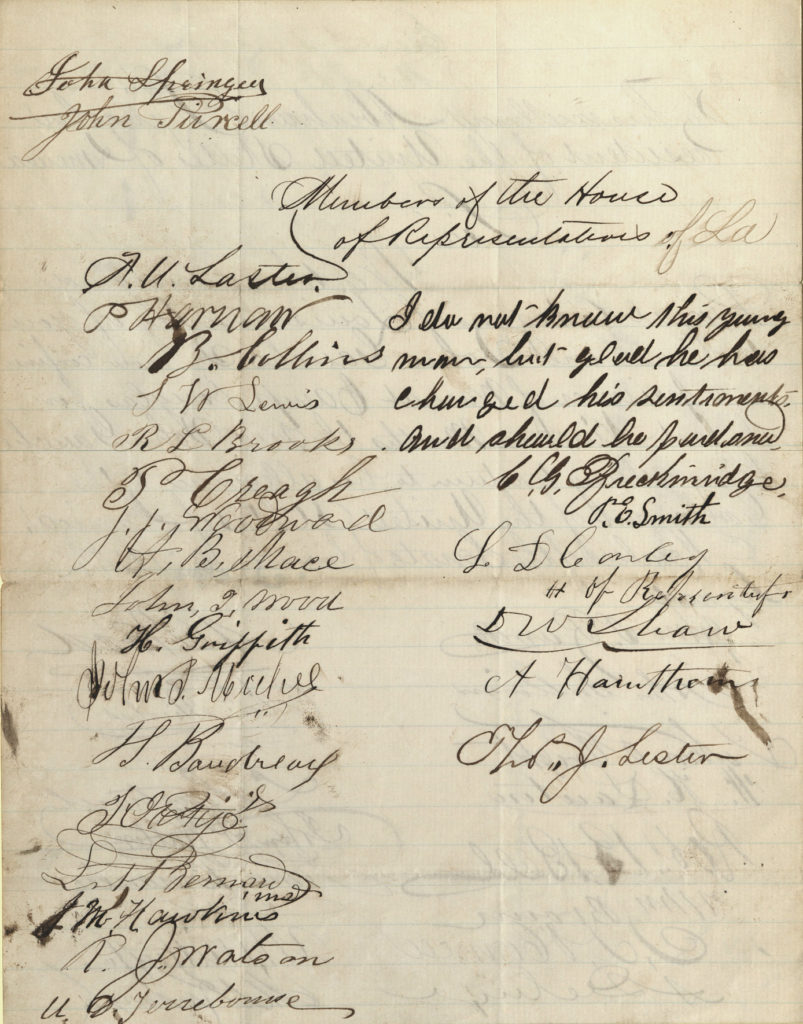 John Springer
John Purcell
Members of the House
of Representatives of La
A. U. Laster
P Harnan
B. Collins
S W Lewis
R L Brooks
P Creagh
J. J. Woodward
A, B, Mace
John, T, Wood
H. Griffith
John P.
S. Boudreaux
L Bernard
J. M. Hawkins
R. J. Watson
U. D. Terrebonne
I do not know this young
man, but glad he has
changed his sentiments.
and should be pardoned.
C. G. Breckinridge.
P. E. Smith
L D Conley
H of Representatives
D W Shaw
A Hawthorn
Thos. J. Lester